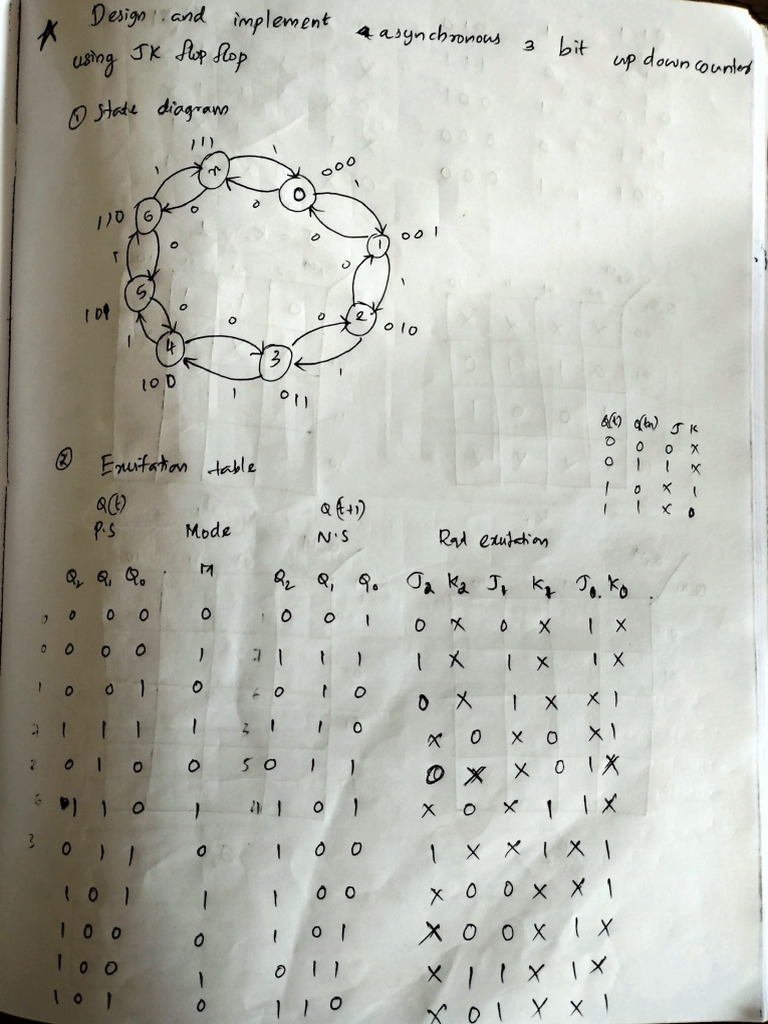 * Design and implement a asynchronous 3 bit up down counter
using JK flop flop
① State diagram
111
1 1 000
7 0 1
1 0 0
110 6 0 0 1 001
1 0 0 1
5 0 0 0 2 010
101 1 4 3 1
100 1 011
Q(t) Q(t+1) J K
0 0 0 X
0 1 1 X
1 0 X 1
1 1 X 0
② Exuitation table
Q(t) Q(t+1)
P.S Mode N.S Rqd exutation
Q2 Q1 Q0 M Q2 Q1 Q0 J2 K2 J1 K1 J0 K0
0 0 0 0 0 0 1 0 X 0 X 1 X
0 0 0 0 1 7 1 1 1 1 X 1 X 1 X
1 0 0 1 0 0 1 0 0 X 1 X X 1
1 1 1 1 1 1 0 X 0 X 0 X 1
2 0 1 0 0 5 0 1 1 0 X X 0 1 X
6 1 1 0 1 1 0 1 X 0 X 1 1 X
3 0 1 1 0 1 0 0 1 X X 1 X 1
1 0 1 1 1 0 0 X 0 0 X X 1
1 0 0 0 1 0 1 X 0 0 X 1 X
1 0 0 1 0 1 1 X 1 1 X 1 X
1 0 1 0 1 1 0 X 0 1 X X 1